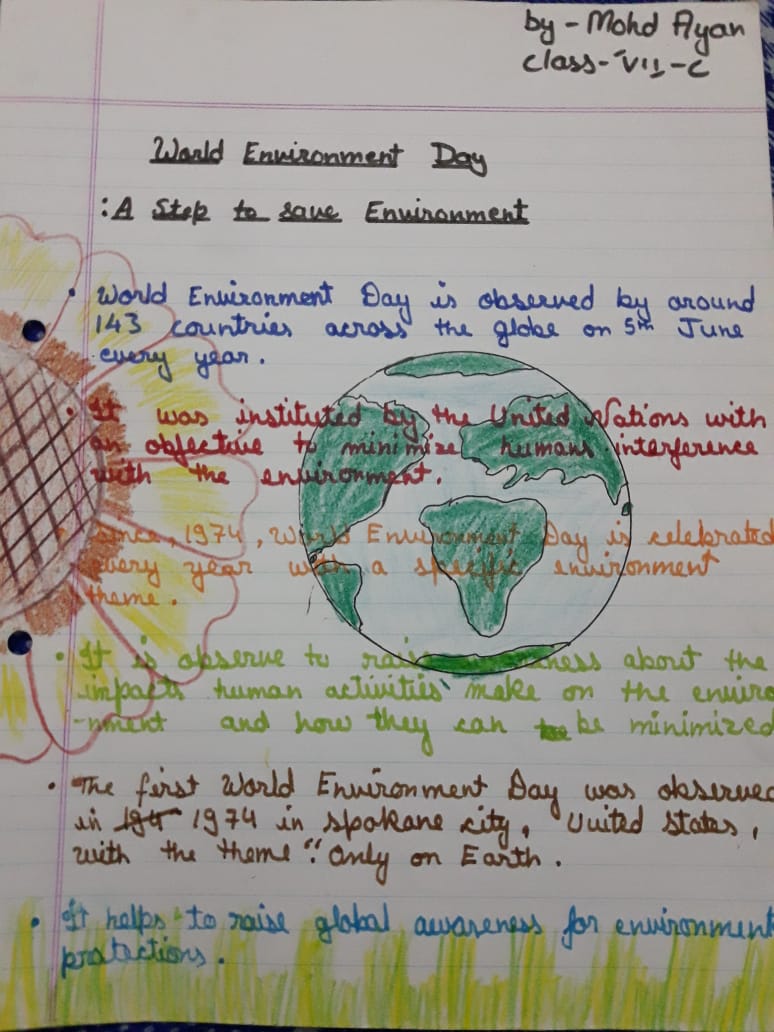 by - Mohd Ayan
class - VII - C
World Environment Day
: A Step to save Environment
• World Environment Day is observed by around
143 countries across the globe on 5th June
every year.
• It was instituted by the United Nations with
an objective to minimize humans interference
with the environment.
• Since, 1974, World Environment Day is celebrated
every year with a specific environment
theme.
• It is observe to raise ness about the
impacts human activities make on the enviro
-nment and how they can be minimized
• The first World Environment Day was observed
in 1974 in spokane city, United States,
with the theme ". Only on Earth.
• It helps to raise global awareness for environment
protactions.